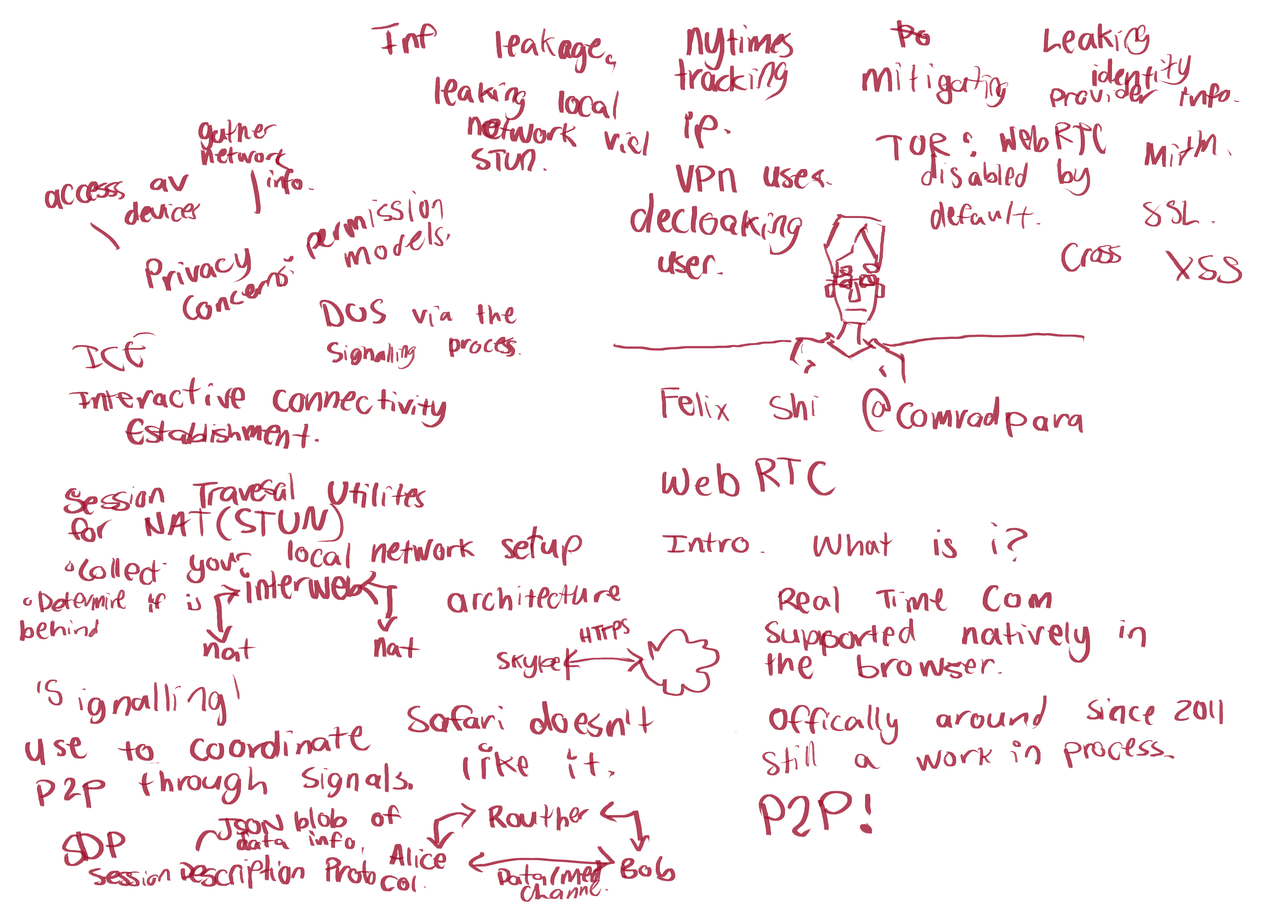 Inf leakage.
leaking local
network via
STUN.
nytimes
tracking
ip.
VPN user.
decloaking
user.
mitigating
TOR: WebRTC
disabled by
default.
Leaking
identity
provider info.
MitM.
SSL.
Cross XSS
gather
network
info.
access av
devices
Privacy
Concerns.
permission
models.
DOS via the
Signalling proces.
ICE
Interactive Connectivity
Establishment.
Session Travesal Utilites
for NAT (STUN)
Collect your local network setup
Determine if is
behind
interweb
nat
nat
architecture
Skype
HTTPS
'Signalling'
use to coordinate
P2P through signals.
Safari doesn't
like it.
SDP
JSON blob of
data info.
Session Description Protocol.
Routher
Alice
Bob
Data/med
channel.
Felix Shi @comradpara
WebRTC
Intro. What is i?
Real Time Com
Supported natively in
the browser.
Offically around since 2011
Still a work in process.
P2P!